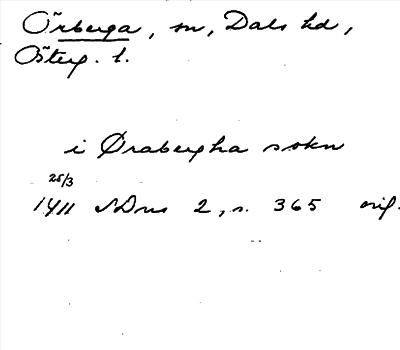 Örberga, sn, Dals hd,
Österg. l.
i Ørabergha sokn
25/3
1411 SDns 2, s. 365 orig.